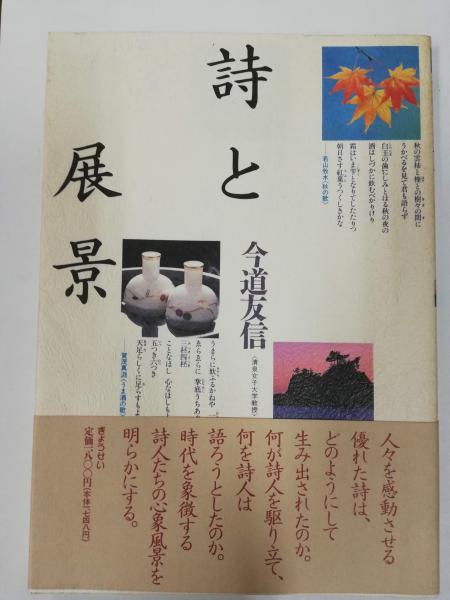 詩と
展景
秋の雲柿と榛との樹々の間に
うかべるを見て君も語らず
白玉の歯にしみとほる秋の夜の
酒はしづかに飲むべかりけり
霜はいま雫となりてしたたりつ
朝日さす紅葉うつくしきかな
——若山牧水〈秋の歌〉
今道友信
〈清泉女子大学教授〉
うまらに飲ふるかねや 一
ゑらゑらに 掌底うちあ
三杯四杯
ことなほし 心なほしもよ
五つき六つき
天足らしくに足らすもよ
——賀茂真淵〈うま酒の歌〉
人々を感動させる
優れた詩は、
どのようにして
生み出されたのか。
何が詩人を駆り立て、
何を詩人は
語ろうとしたのか。
時代を象徴する
詩人たちの心象風景を
明らかにする。
ぎょうせい
定価一八〇〇円(本体一七四八円)